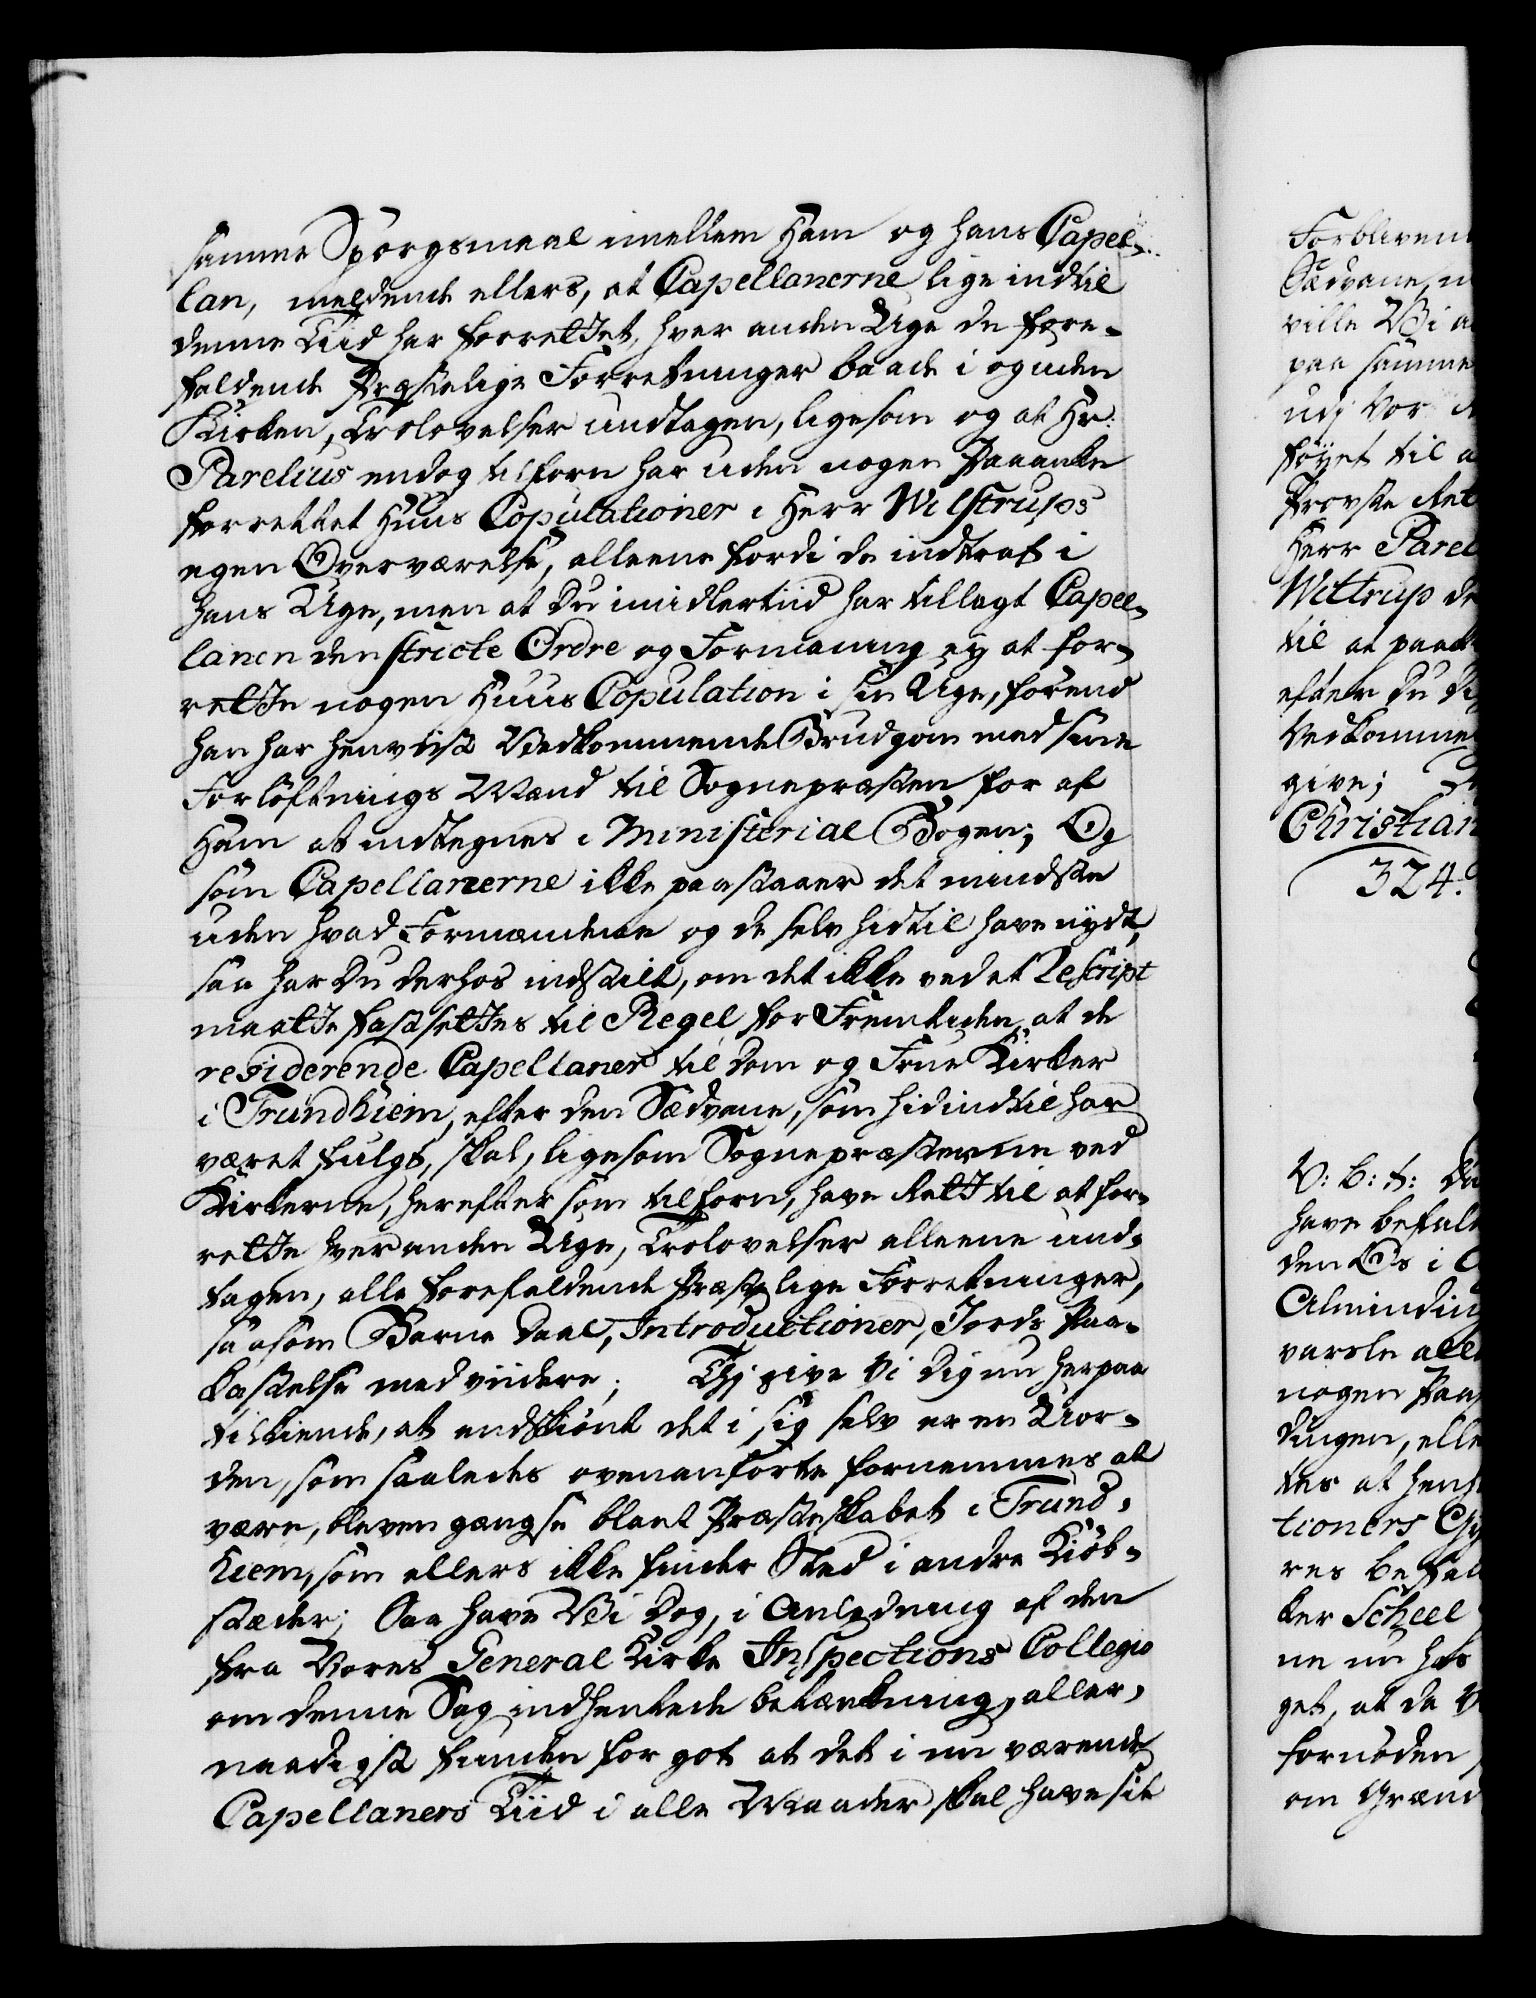 samme Spørgsmaal imellem Ham og hans Capel-
lan, meldende ellers, at Capellanerne lige indtil
denne Tiid har forrettet, hver anden Uge de fore-
faldende Præstelige Forretninger baade i og uden
Kirken, Trolovelser undtagen, ligesom og at Hr:
Parelius endog tilforn har uden nogen Paaanke
forrettet Huus Copulationer i Herr Wilstrups
egen Overværelse, alleene fordi de indtraf i
hans Uge, men at Du imidlertiid har tillagt Capel-
lanen den stricte Ordre og Formaning ey at for-
rette nogen Huus Copulation i sin Uge, førend
han har henviist Vedkommende Brudgom med sine
Forløftnings Mænd til Sognepræsten for af
Ham at indtegnes i Ministerial Bogen; Og
som Capellanerne ikke paastaaer det mindste
uden hvad Formændene og de selv hidtil have nydt,
saa har Du derhos indstilt, om det ikke ved et Rescript
maatte fastsettes til Regel for Fremtiden, at de
residerende Capellaner til Dom og Frue Kirker
i Trundhiem, efter den Sædvane, som hidindtil har
været fulgt, skal, ligesom Sognepræsterne ved
Kirkerne, herefter som tilforn, have Rett til at for-
rette hver anden Uge, Trolovelser alleene und-
tagen, alle forefaldende Præstelige Forretninger,
saasom Barne Daab, Introductioner, Jords Paa-
kastelse med viidere; Thi give Vi Dig nu herpaa
tilkiende, at endskiønt det i sig selv er en Uor-
den, som saaledes ovenanførte fornemmes at
være, bleven gængse blant Præsteskabet i Trund-
hiem, som ellers ikke finder Sted i andre Kiøb-
stæder; Saa have Vi dog, i Anledning af den
fra Vores General Kirke Inspections Collegio
om denne Sag indhentede betænkning, aller-
naadigst funden for got at det i nu værende
Capellaners Tiid i alle Maader skal have sit
Forbliven
Sædvane,
ville Vi a
paa samme
udj Vor
føyet til a
Provste Ret
Herr Parel
Wittrup de
til at paa
efter Du
Vedkomme
give;
Christian
324.
V: B: t: Du
have befal
den Os i
Almindin
varsle all
nogen Paa
dingen, elle
tes at hens
tioners
res befal
ker Scheel
ne nu har
get, at da
fornøden
om Grænd